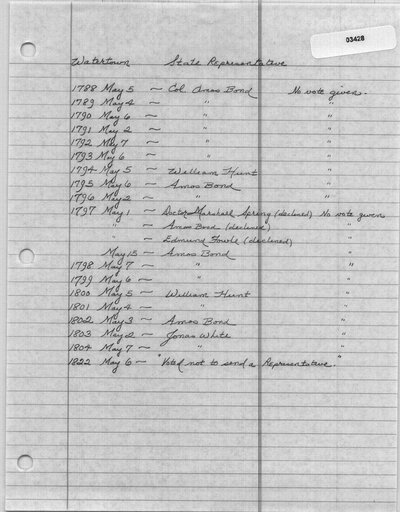 03428
Watertown State Representative
1788 May 5 ~ Col. Amos Bond No vote given.
1789 May 4 ~ " "
1790 May 6 ~ " "
1791 May 2 ~ " "
1792 May 7 ~ " "
1793 May 6 ~ " "
1794 May 5 ~ William Hunt "
1795 May 6 ~ Amos Bond "
1796 May 2 ~ " "
1797 May 1 ~ Doctor Marshall Spring (declined) No vote given
" ~ Amos Bond (declined) "
" ~ Edmund Fowle (declined) "
May 15 ~ Amos Bond "
1798 May 7 ~ " "
1799 May 6 ~ " "
1800 May 5 ~ William Hunt "
1801 May 4 ~ " "
1802 May 3 ~ Amos Bond "
1803 May 2 ~ Jonas White "
1804 May 7 ~ " "
1822 May 6 ~ "Voted not to send a Representative."